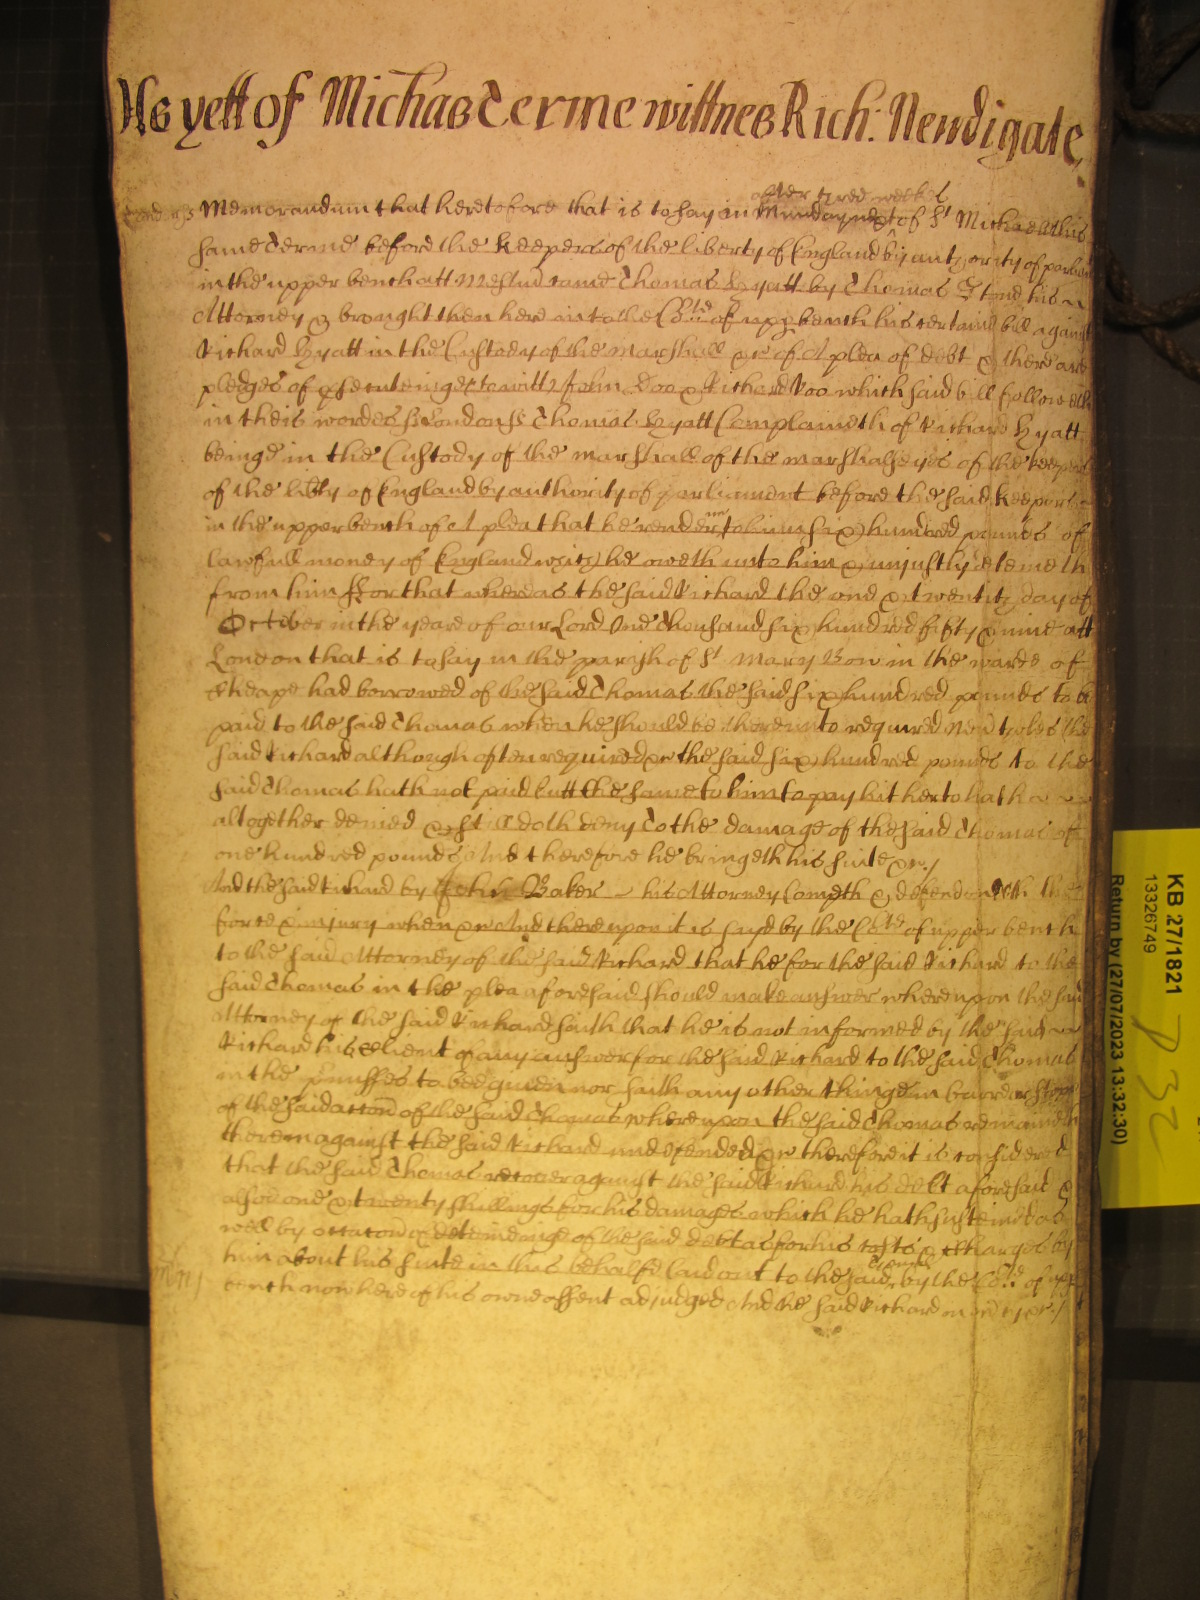 As yett of Michas Terme wittnes Rich: Newdigate
Lond ss Memorandum that heretofore that is to say in Munday next after three weekes of St Michaell this
same Terme before the Keepers of the liberty of England by authority of parliamt
in the upper bench att Westmr came Thomas Hyatt by Thomas Stone his
Attorney & brought then here into the Cort of upp bench his certaine bill against
Richard Hyatt in the Custody of the Marshall &c of A plea of debt & there are
pledges of prosecuteinge to witt John Doo & Richard Roo which said bill followeth
in theis wordes ss London ss Thomas Hyatt Complaineth of Richard Hyatt
beinge in the Custody of the marshall of the marshalseyes of the keepers
of the libty of England by authority of parliament before the said Keepers
in the upper bench of A plea that he render unto him six hundred pounds of
lawfull money of England which he oweth unto him & unjustly deteineth
from him For that whereas the said Richard the one & twentith day of
October in the yeare of our Lord One Thousand six hundred fifty & nine att
London that is to say in the parish of St Mary Bow in the warde of
Cheape had borrowed of the said Thomas the said six hundred pounds to be
paid to the said Thomas when he should be thereunto required Neverthelesse the
said Richard although often required &c the said six hundred pounds to the
said Thomas hath not paid butt the same to him to pay hitherto hath
altogether denied & still doth deny To the damage of the said Thomas of
one hundred pounds And therefore he bringeth his suite &c /
And the said Richard by John Baker his Attorney Cometh & defendeth the
force & injury when &c And thereupon it is said by the Cort of upper bench
to the said Attorney of the said Richard that he for the said Richard to the
said Thomas in the plea aforesaid should make answer whereupon the said
Attorney of the said Richard saith that he is not informed by the said
Richard his Client of any answer for the said Richard to the said Thomas
in the premisses to bee given nor saith any other thinge in barr or stopp
of the said accon of the said Thomas whereupon the said Thomas remaineth
therein against the said Richard undefended &c therefore it is considered
that the said Thomas recover against the said Richard his debt aforesaid &
alsoe one & twenty shillings for his damages which he hath susteined as
well by occacon of deteineinge of the said debt as for his costs & Charges by
him about his suite in this behalfe laid out to the said Thomas by the Cort of upp
bench now here of his owne assent adjudged And the said Richard in mercy &c /
KB 27/1821
13326749
Return by (27/07/2023 13:32:30)